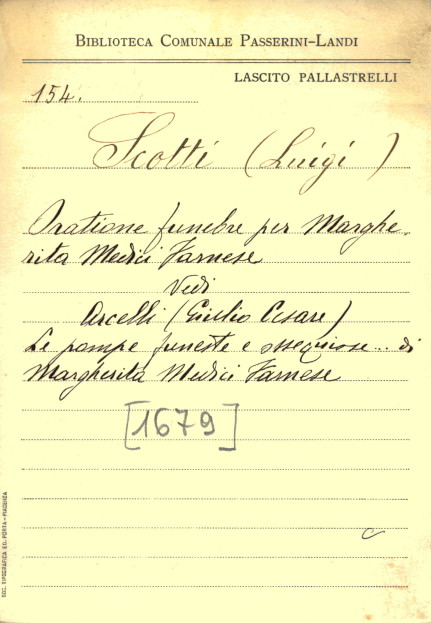 BIBLIOTECA COMUNALE PASSERINI-LANDI
LASCITO PALLASTRELLI
154.
Scotti (Luigi)
Oratione funebre per Marghe.
rita Medici Farnese
Vedi
Arcelli (Giulio Cesare)
Le pompe funeste e ossequiose... di
Margherita Medici Farnese
[1679]
c
SOC. TIPOGRAFICA ED. PORTA - PIACENZA